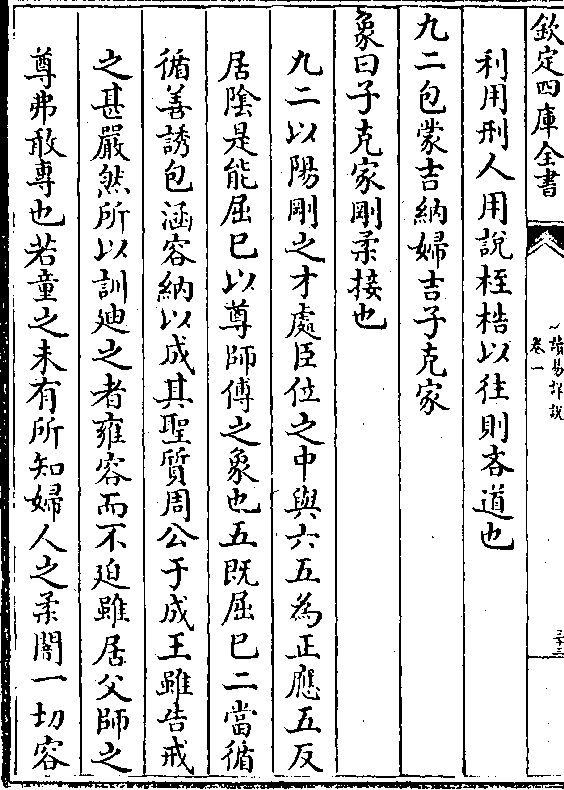 欽定四庫全書
讀易詳說
卷一
二十三
利用刑人用說桎梏以往則吝道也
九二包蒙吉納婦吉子克家
象曰子克家剛柔接也
九二以陽剛之才處臣位之中與六五為正應五反
居陰是能屈已以尊師傅之象也五既屈已二當循
循善誘包涵容納以成其聖質周公于成王雖告戒
之甚嚴然所以訓廸之者雍容而不迫雖居父師之
尊弗敢專也若童之未有所知婦人之柔闇一切容